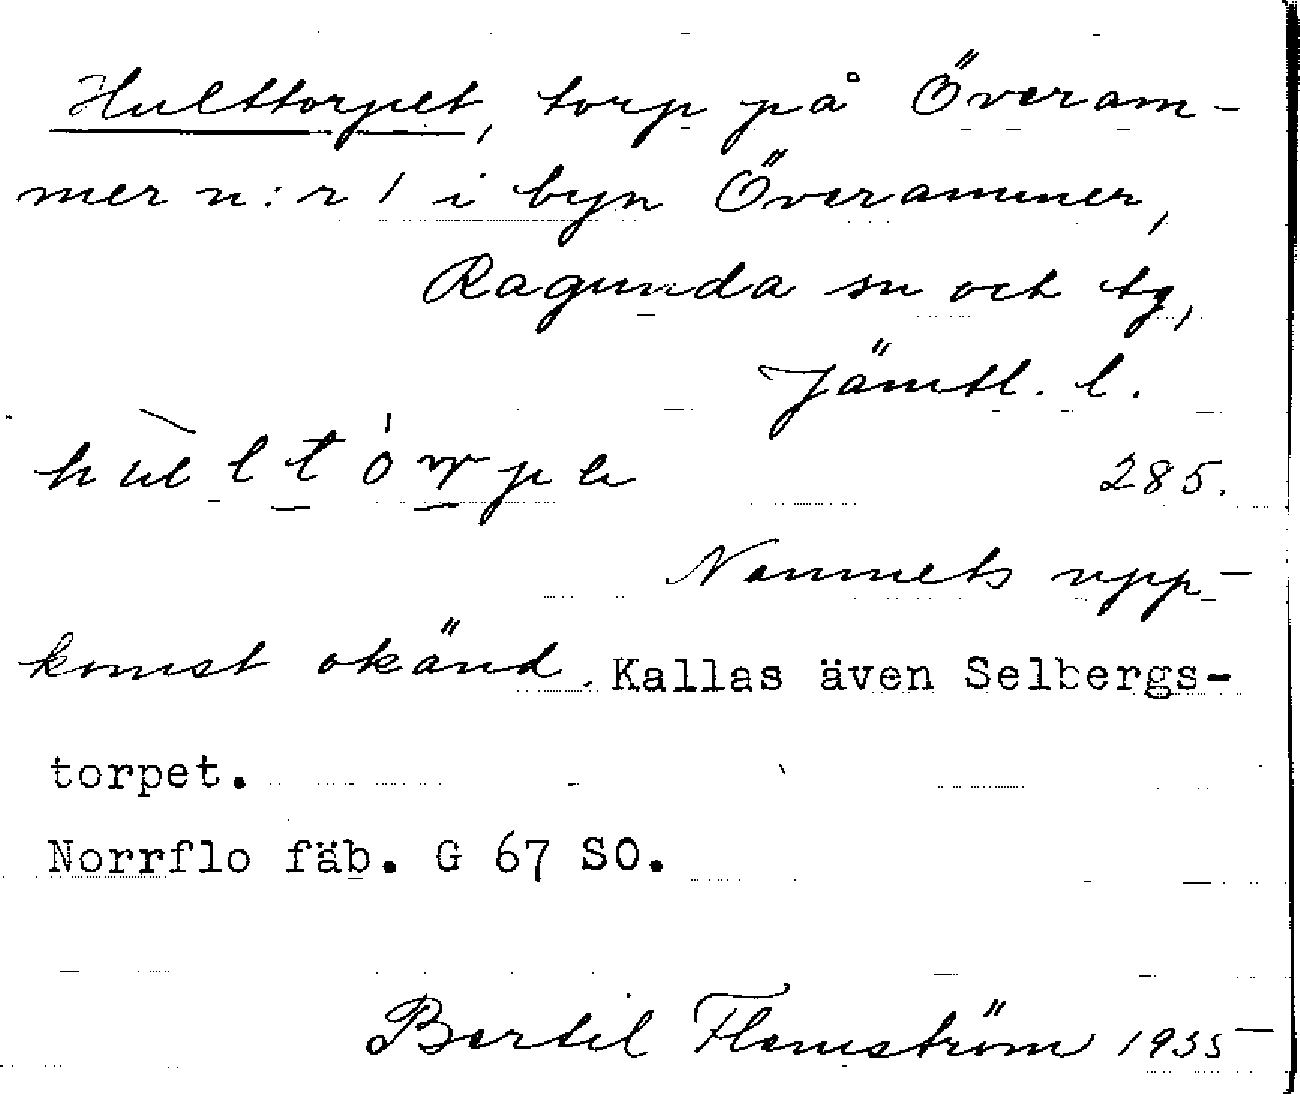 Hulttorpet, torp på Överam-
mer n:r 1 i byn Överammer,
Ragunda sn och tg,
Jämtl. l.
hùltórpe
285.
Namnets upp-
komst okänd. Kallas även Selbergs-
torpet.
Norrflo fäb. G 67 SO.
Bertil Flemström 1935